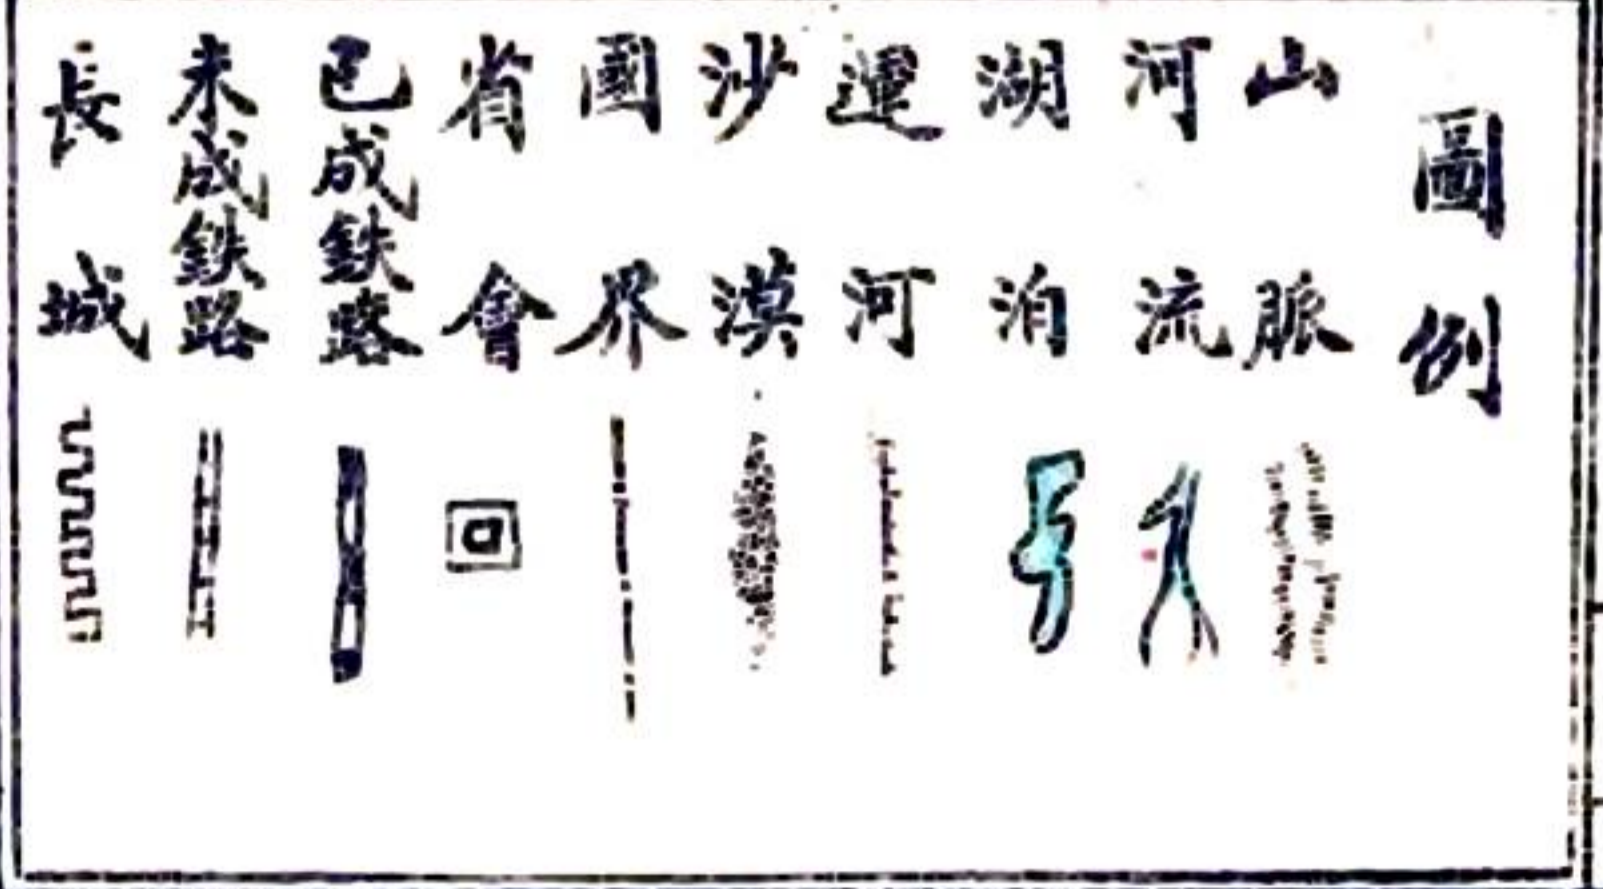 圖例
山脈
河流
湖泊
運河
沙漠
國界
省會
已成鉄路
未成鉄路
長城